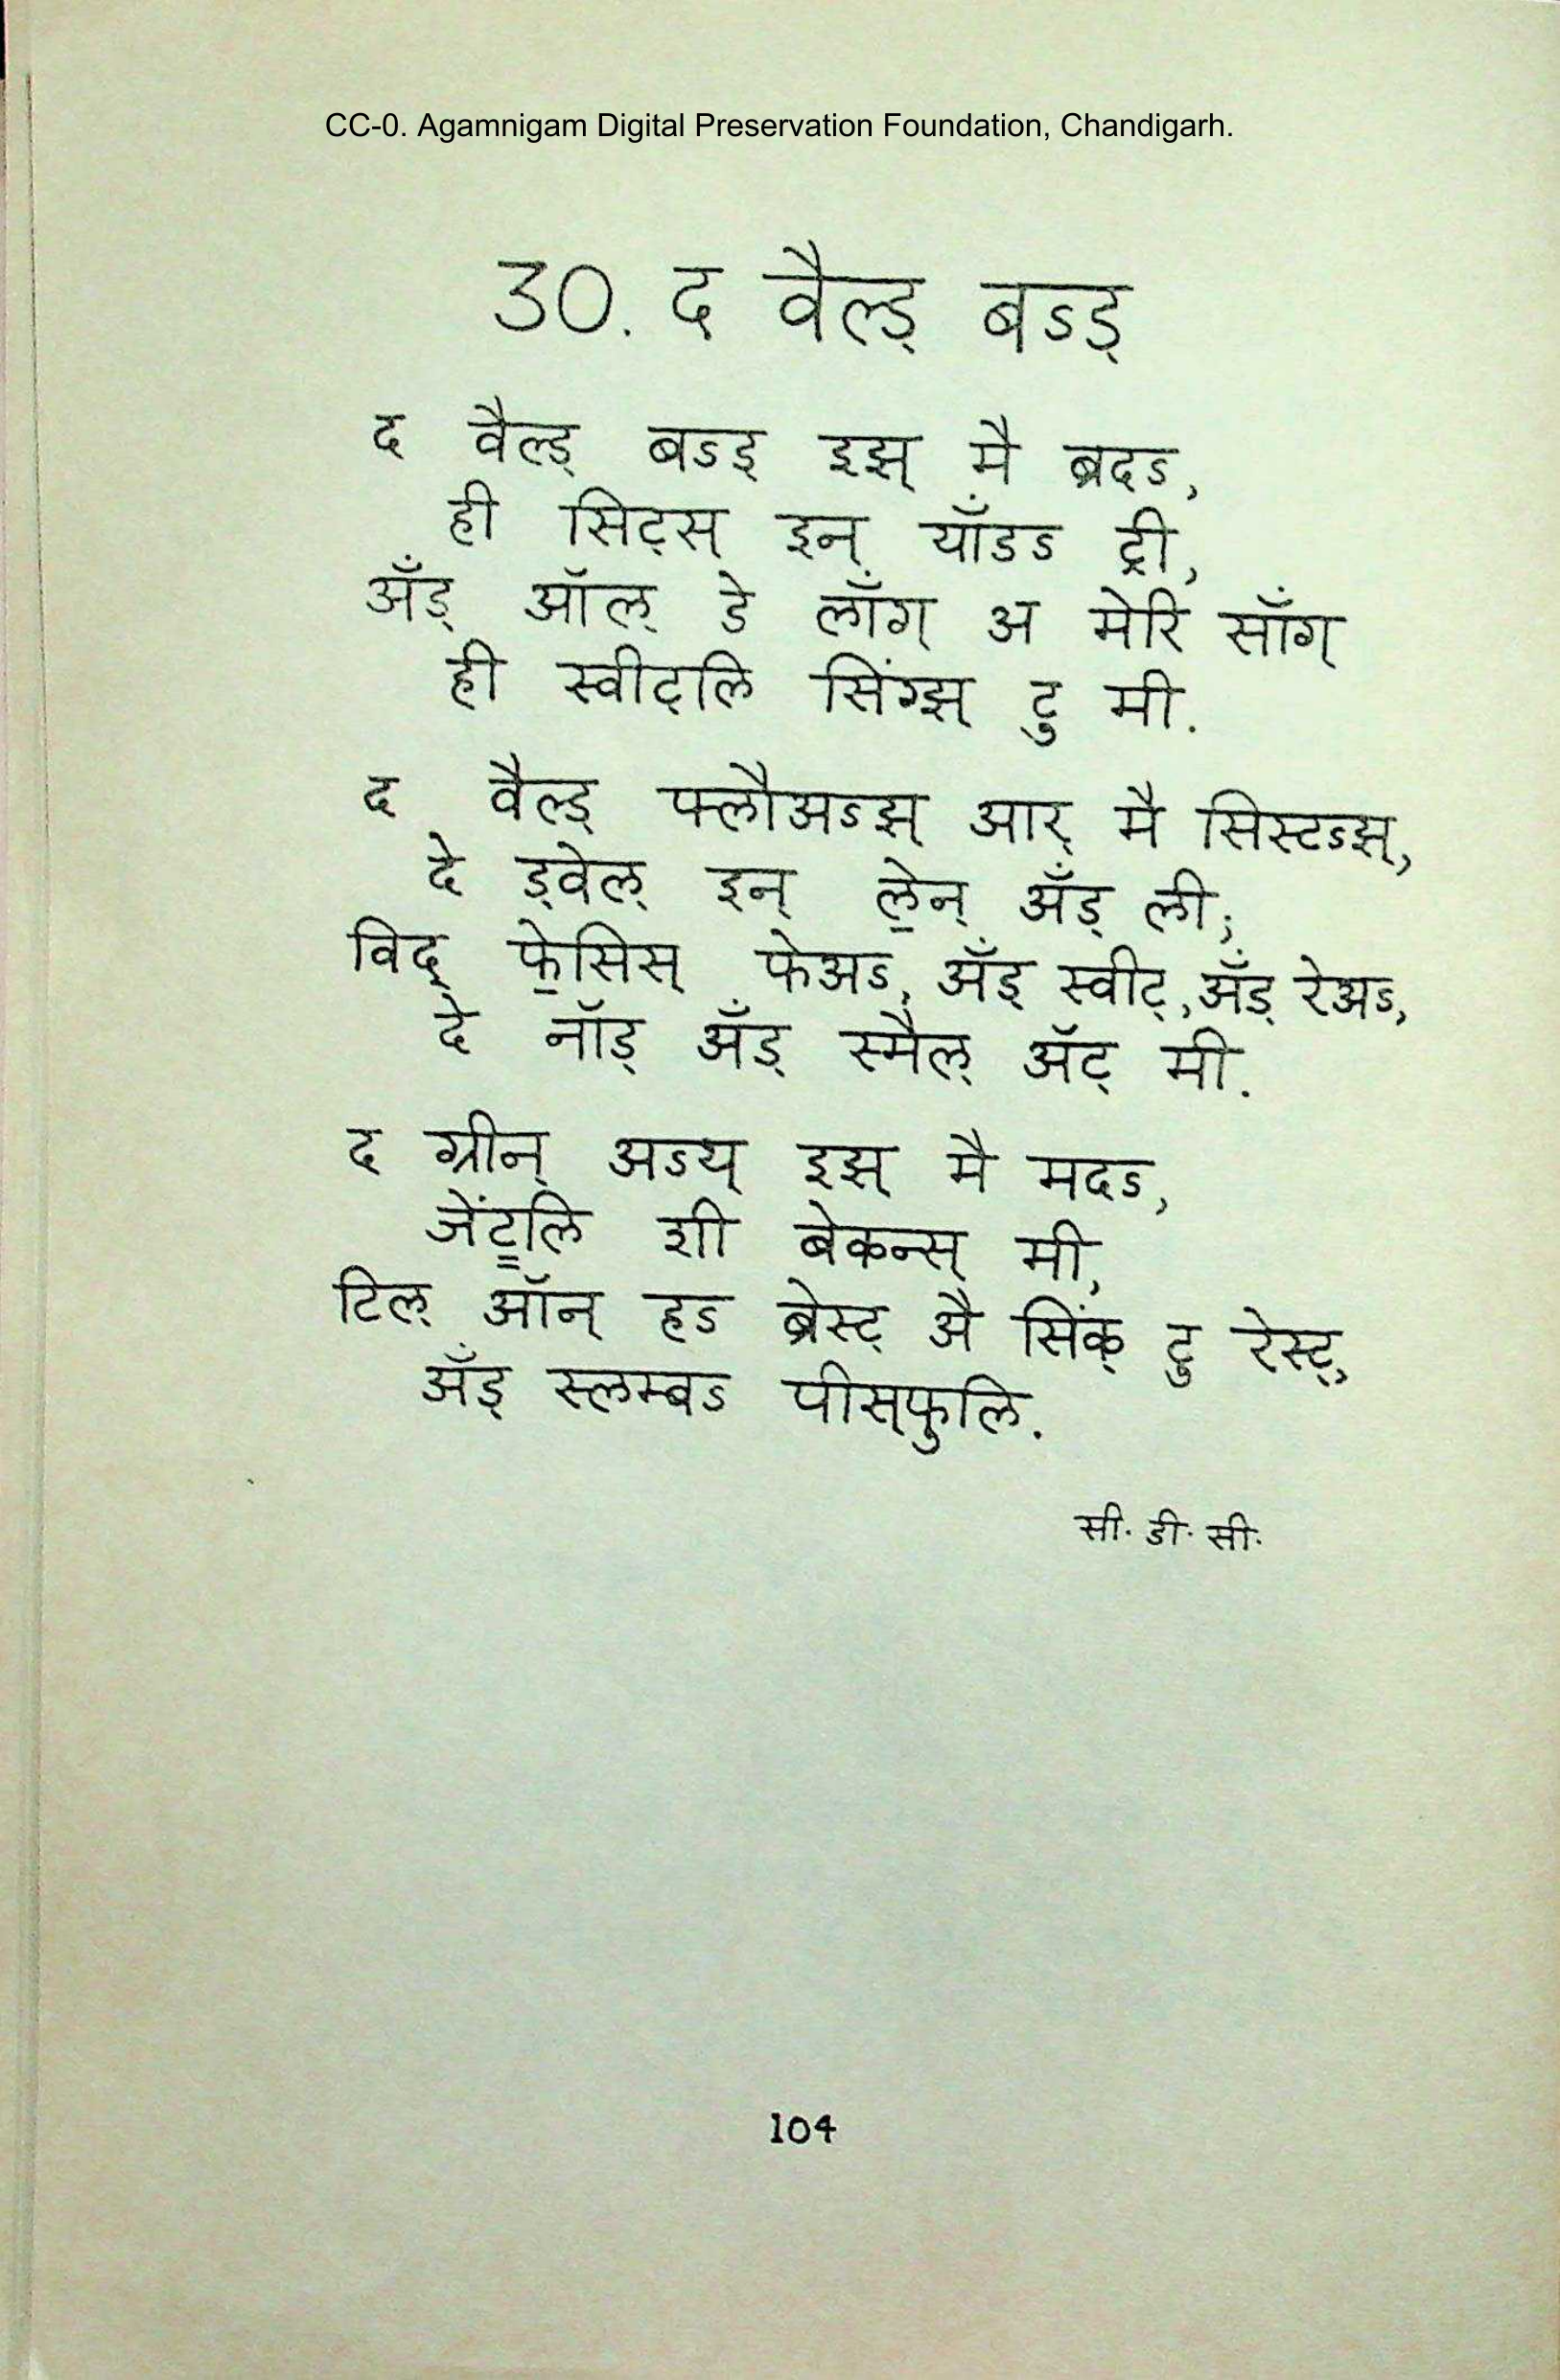 CC-0. Agamnigam Digital Preservation Foundation, Chandigarh.
30. द वैल्ड् बऽड्
द वैल्ड् बऽड् इझ् मै ब्रदऽ,
ही सिट्स् इन् यॉंडऽ ट्री,
ॲंड् ऑल् डे लॉंग् अ मेरि सॉंग्
ही स्वीट्लि सिंग्झ् टु मी.
द वैल्ड् फ्लौअऽझ् आर् मै सिस्टऽझ्,
दे ड्वेल् इन् ले॒न् ॲंड् ली;
विद् फे॒सिस् फेअऽ, ॲंड् स्वीट्, ॲंड् रेअऽ,
दे नॉड् ॲंड् स्मैल् ॲट् मी.
द ग्रीन् अऽथ् इझ् मै मदऽ,
जेंट्लि शी बेकन्स् मी,
टिल् ऑन् हऽ ब्रेस्ट् अै सिंक् टु रेस्ट्,
ॲंड् स्लम्बऽ पीस्फुलि.
सी. डी. सी.
104